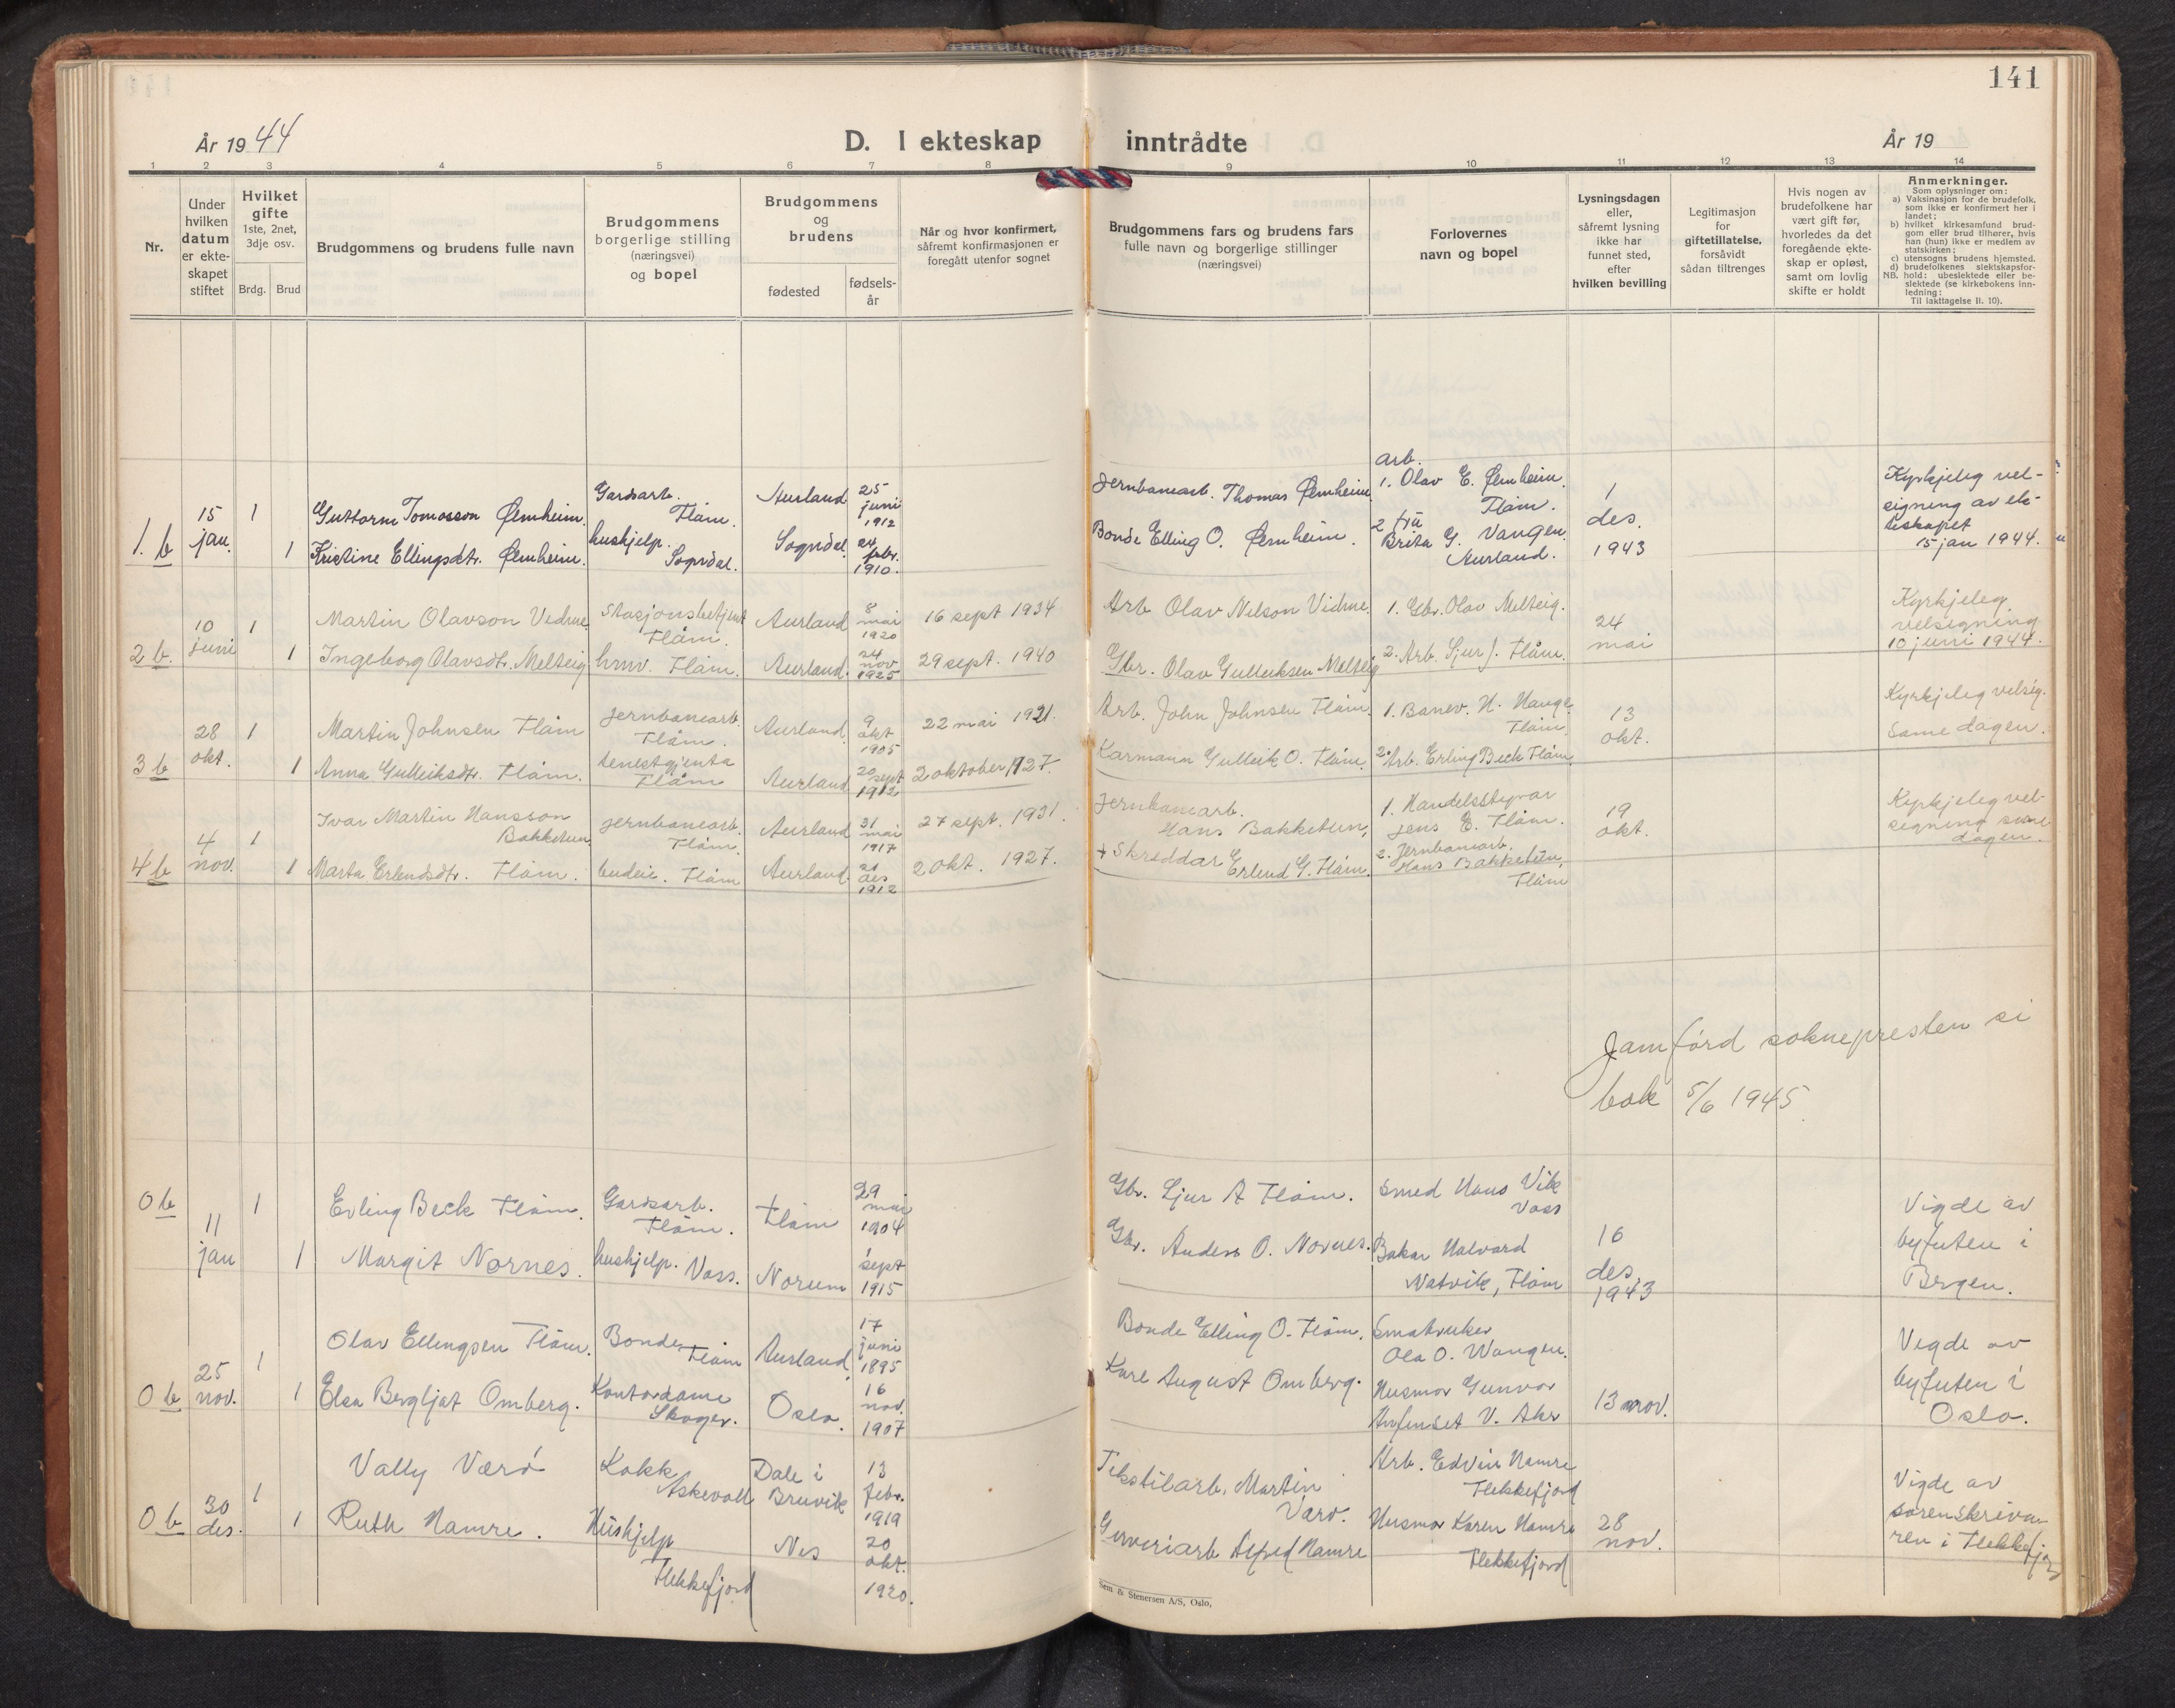 141
År 1944
D. I ekteskap inntrådte
År 19
1 2 3 4 5 6 7 8 9 10 11 12 13 14
Nr.
Under
hvilken
datum
er ekte-
skapet
stiftet
Hvilket
gifte
1ste, 2net,
3dje osv.
Brdg.
Brud
Brudgommens og brudens fulle navn
Brudgommens
borgerlige stilling
(næringsvei)
og bopel
Brudgommens
og
brudens
fødested
fødsels-
år
Når og hvor konfirmert,
såfremt konfirmasjonen er
foregått utenfor sognet
Brudgommens fars og brudens fars
fulle navn og borgerlige stillinger
(næringsvei)
Forlovernes
navn og bopel
Lysningsdagen
eller,
såfremt lysning
ikke har
funnet sted,
efter
hvilken bevilling
Legitimasjon
for
giftetillatelse,
forsåvidt
sådan tiltrenges
Hvis nogen av
brudefolkene har
vært gift før,
hvorledes da det
foregående ekte-
skap er opløst,
samt om lovlig
skifte er holdt
Anmerkninger.
Som oplysninger om:
a) Vaksinasjon for de brudefolk,
som ikke er konfirmert her i
landet;
b) hvilket kirkesamfund brud-
gom eller brud tilhører, hvis
han (hun) ikke er medlem av
statskirken;
c) utensogns brudens hjemsted.
d) brudefolkenes slektskapsfor-
NB. hold: ubeslektede eller be-
slektede (se kirkebokens inn-
ledning:
Til iakttagelse II. 10).
1. b
15
jan.
1
1
Guttorm Tomasson Ølmheim.
Kristine Ellingsdtr. Ølmheim.
Gardsarb.
Flåm.
hushjelp.
Sogndal.
Aurland
Sogndal.
25
juni
1912
24
febr.
1910.
Jernbanearb. Thomas Ølmheim
Bonde Elling O. Ølmheim.
arb.
1. Olav E. Ølmheim.
Flåm.
2 fru
Brita G. Vangen
Aurland.
1
des.
1943
Kyrkjeleg vel-
signing av ek-
teskapet
15 jan 1944.
2 b.
10
juni
1
1
Martin Olavson Vidme
Ingeborg Olavsdtr. Melteig
Stasjonsbetjent
Flåm.
hmv. Flåm.
Aurland
Aurland.
8
mai
1920
24
nov
1925
16 sept 1934
29 sept. 1940
Arb Olav Nelson Vidme.
Gbr. Olav Gulleiksen Melteig
1. Gbr. Olav Melteig.
2. Arb. Sjur J. Flåm.
24
mai
Kyrkjeleg
velsigning
10 juni 1944.
3 b
28
okt.
1
1
Martin Johnsen Flåm
Anna Gulleiksdtr. Flåm.
Jernbanearb.
Flåm.
tenestgjenta
Flåm
Aurland.
Aurland
9
okt
1905
20
sept
1912
22 mai 1921.
2 oktober 1927.
Arb. John Johnsen Flåm.
Kårmann Gulleik O. Flåm.
1. Banev. H. Hauge
Flåm
2. Arb. Erling Beck Flåm.
13
okt.
Kyrkjeleg velsig.
same dagen.
4 b
4
nov.
1
1
Ivar Martin Hansson
Bakketun
Marta Erlendsdtr. Flåm.
Jernbanearb.
Flåm.
budeie. Flåm
Aurland
Aurland.
31
mai
1917
21
des
1912
27 sept. 1931.
2 okt. 1927.
Jernbanearb.
Hans Bakketun,
+ Skreddar
Erlend G. Flåm.
1. Handelsstyrar
Jens E. Flåm.
2. Jernbanearb.
Hans Bakketun,
Flåm
19
okt.
Kyrkjeleg vel-
signing same
dagen.
Jamførd soknepresten si
bok 5/6 1945.
0 b
11
jan
1
1
Erling Beck Flåm.
Margit Nornes.
Gardsarb.
Flåm.
hushjelp. Voss.
Flåm
Norum
29
mai
1904
1
sept
1915
Gbr. Sjur A Flåm.
Gbr. Anders O. Nornes.
Smed Hans Vik
Voss
Bakar Halvard
Natvik, Flåm
16
des
1943
Vigde av
byfuten i
Bergen.
0 b
25
nov.
1
1
Olav Ellingsen Flåm.
Elsa Bergljot Omberg.
Bonde
Flåm
Kontordame
Skoger.
Aurland.
Oslo.
17
juni
1895
16
nov.
1907
Bonde Elling O. Flåm.
Kare August Omberg.
Småbruker
Ola O. Wangen.
Husmor Gunvor
13 nov.
Vigde av
byfuten i
Oslo.
0 b
30
des.
1
1
Vally Værö
Ruth Namre.
Kokk
Askevoll
Hushjelp
Flekkefjord
Dale i
Bruvik
Nes
13
febr.
1919
20
okt.
1920.
Tekstilarb. Martin
Værö.
Garveriarb Alfred Namre
Arb. Edvin Namre
Flekkefjord
Husmor Karen Namre
Flekkefjord
28
nov.
Vigde av
sorenskriva-
ren i Flekkefjord
Sem & Stenersen A/S, Oslo.